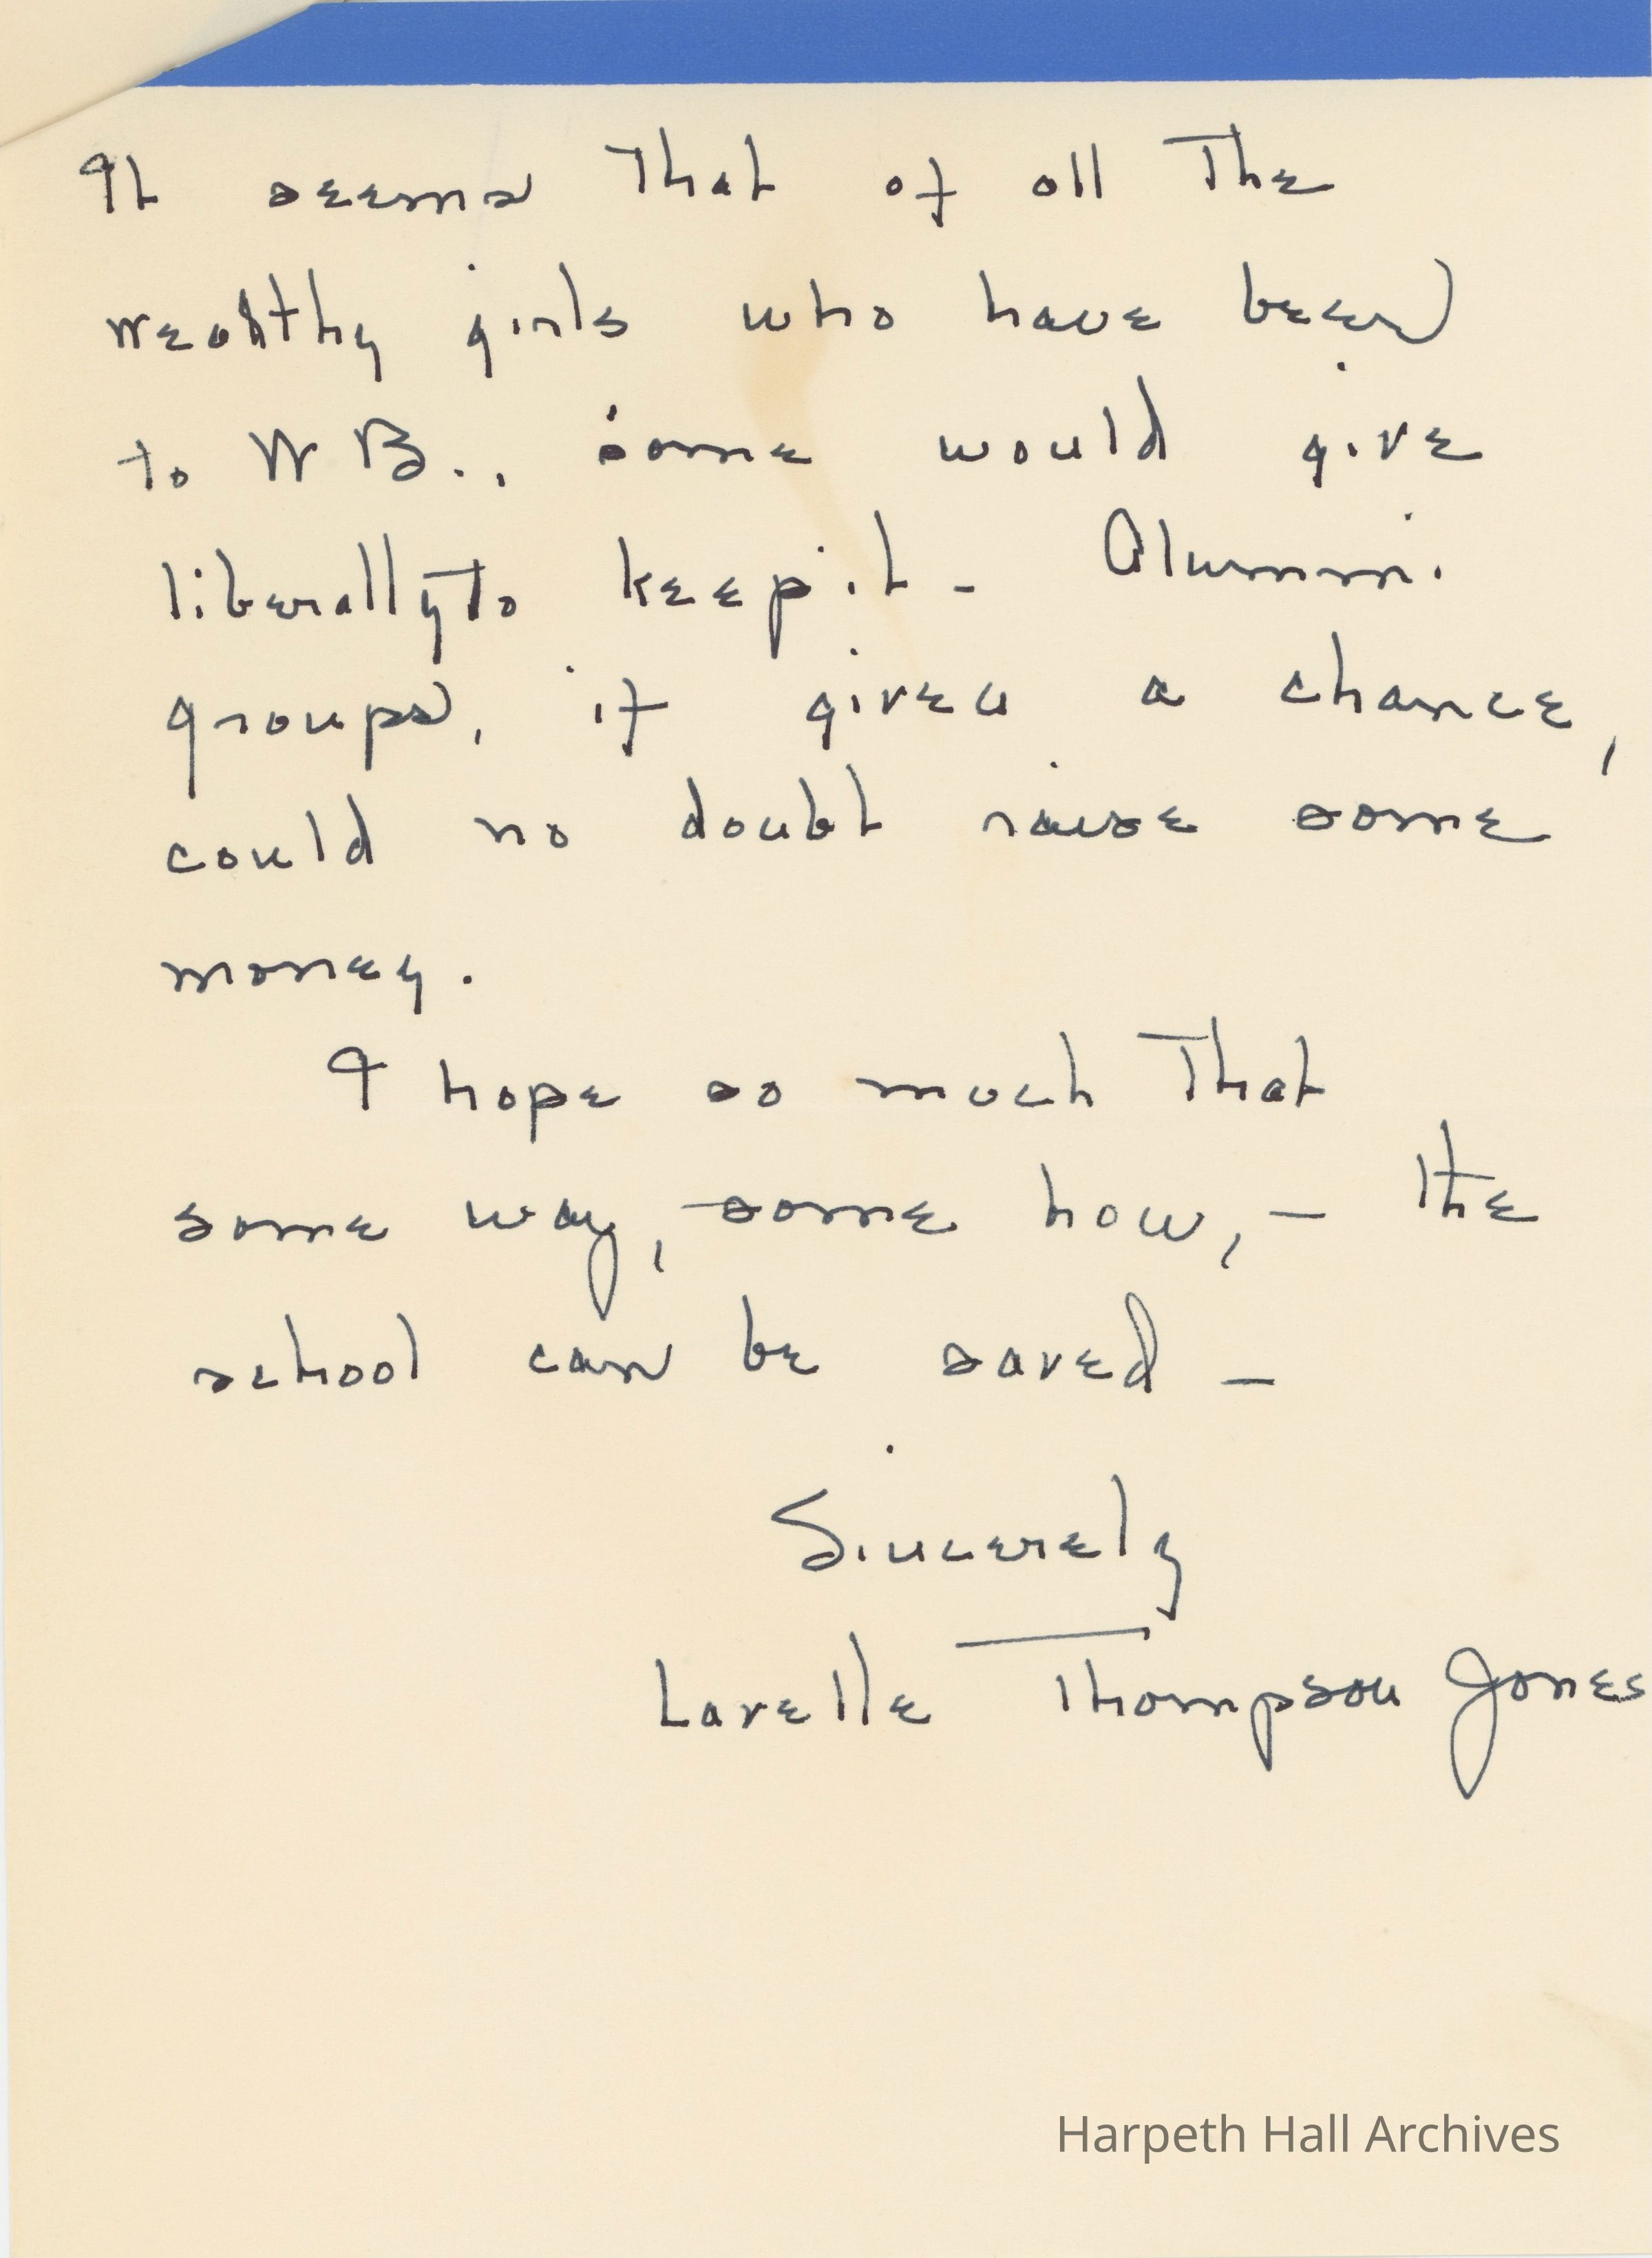 It seems That of all The
wealthy girls who have been
to W B., some would give
liberally to keep it - Alumni
groups, if given a chance,
could no doubt raise some
money.
I hope so much That
some way, some how, - the
school can be saved -
Sincerely
Lavelle Thompson Jones
Harpeth Hall Archives